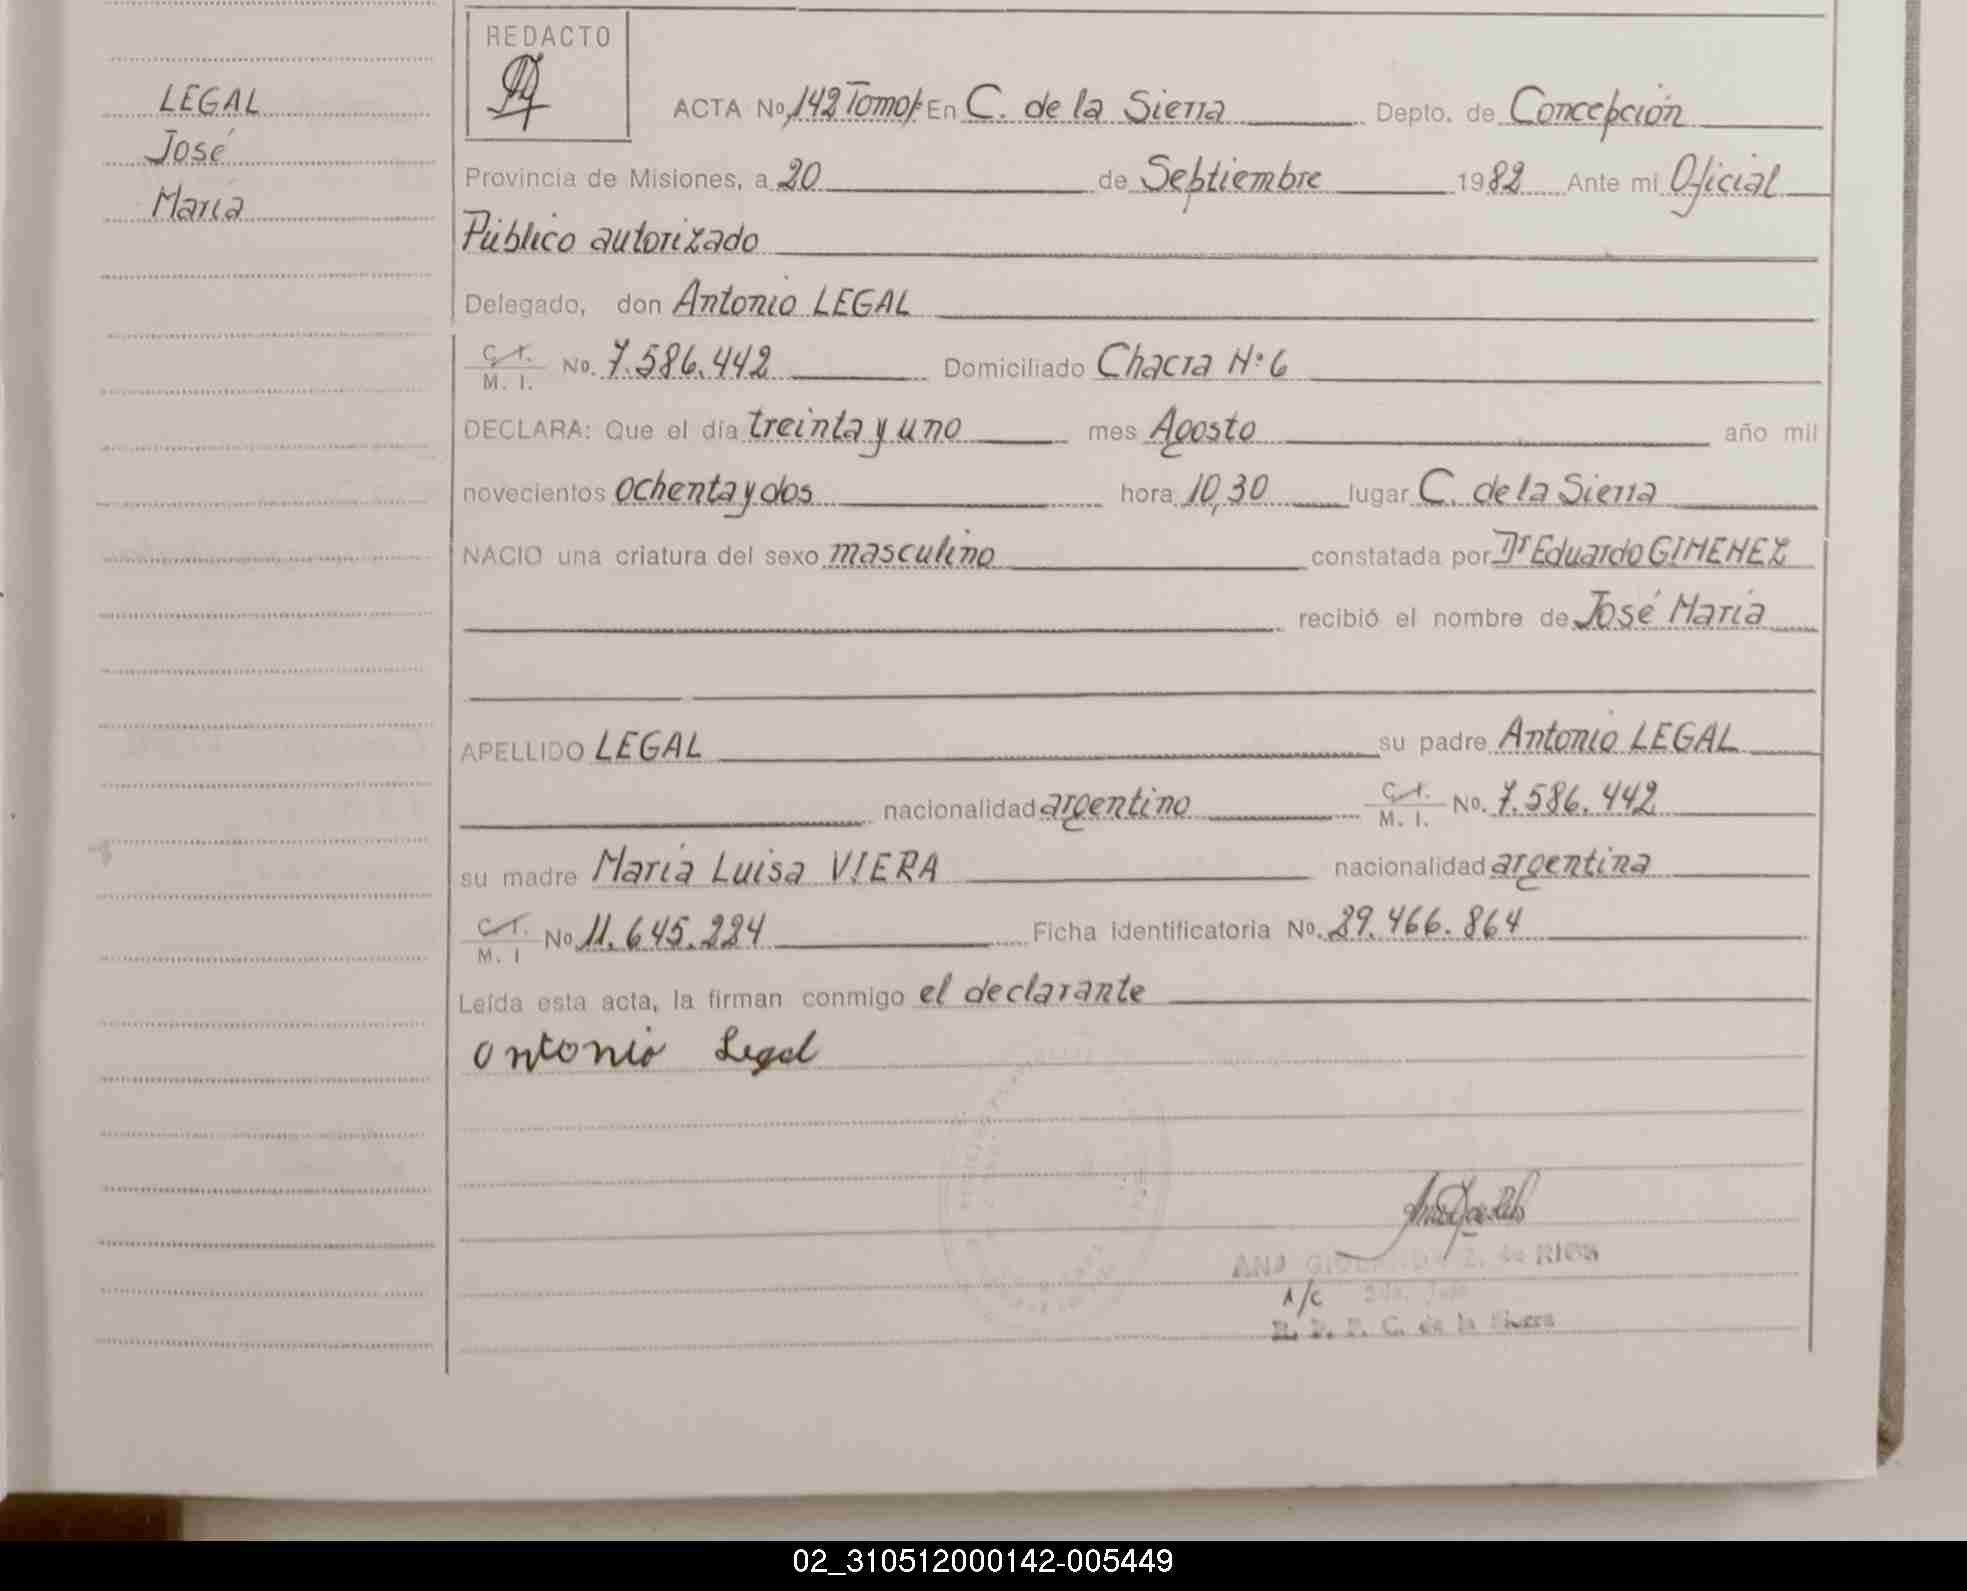 LEGAL
José
María
REDACTO
ACTA No. 142 Tomo I En C. de la Sierra Depto. de Concepción
Provincia de Misiones, a 20 de Septiembre 1982 Ante mi Oficial
Público autorizado
Delegado, don Antonio LEGAL
C. I. M. I. No. 7.586.442 Domiciliado Chacra N° 6
DECLARA: Que el día treinta y uno mes Agosto año mil
novecientos ochenta y dos hora 10,30 lugar C. de la Sierra
NACIO una criatura del sexo masculino constatada por Dr Eduardo GIMENEZ
recibió el nombre de José María
APELLIDO LEGAL su padre Antonio LEGAL
nacionalidad argentino C. I. M. I. No. 7.586.442
su madre María Luisa VIERA nacionalidad argentina
C. I. M. I No 11.645.224 Ficha identificatoria No. 29.466.864
Leída esta acta, la firman conmigo el declarante
Antonio Legal
ANA Z. de RIOS
A/C
C. de la Sierra
02_310512000142-005449